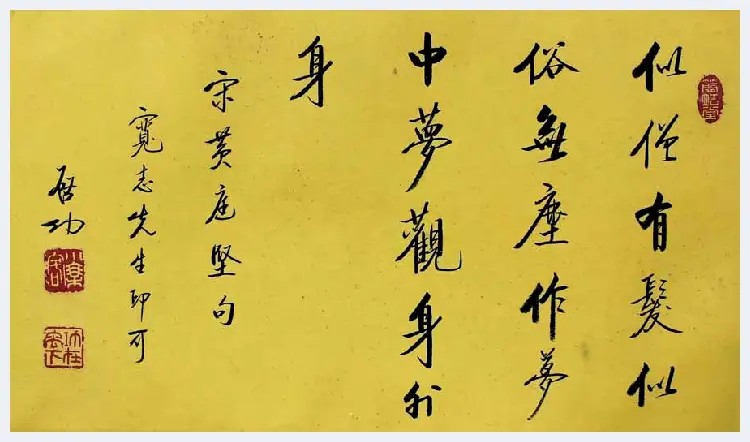 似僧有髮似
俗無塵作夢
中夢觀身外
身
宋黄庭堅句
寬志先生印可
启功